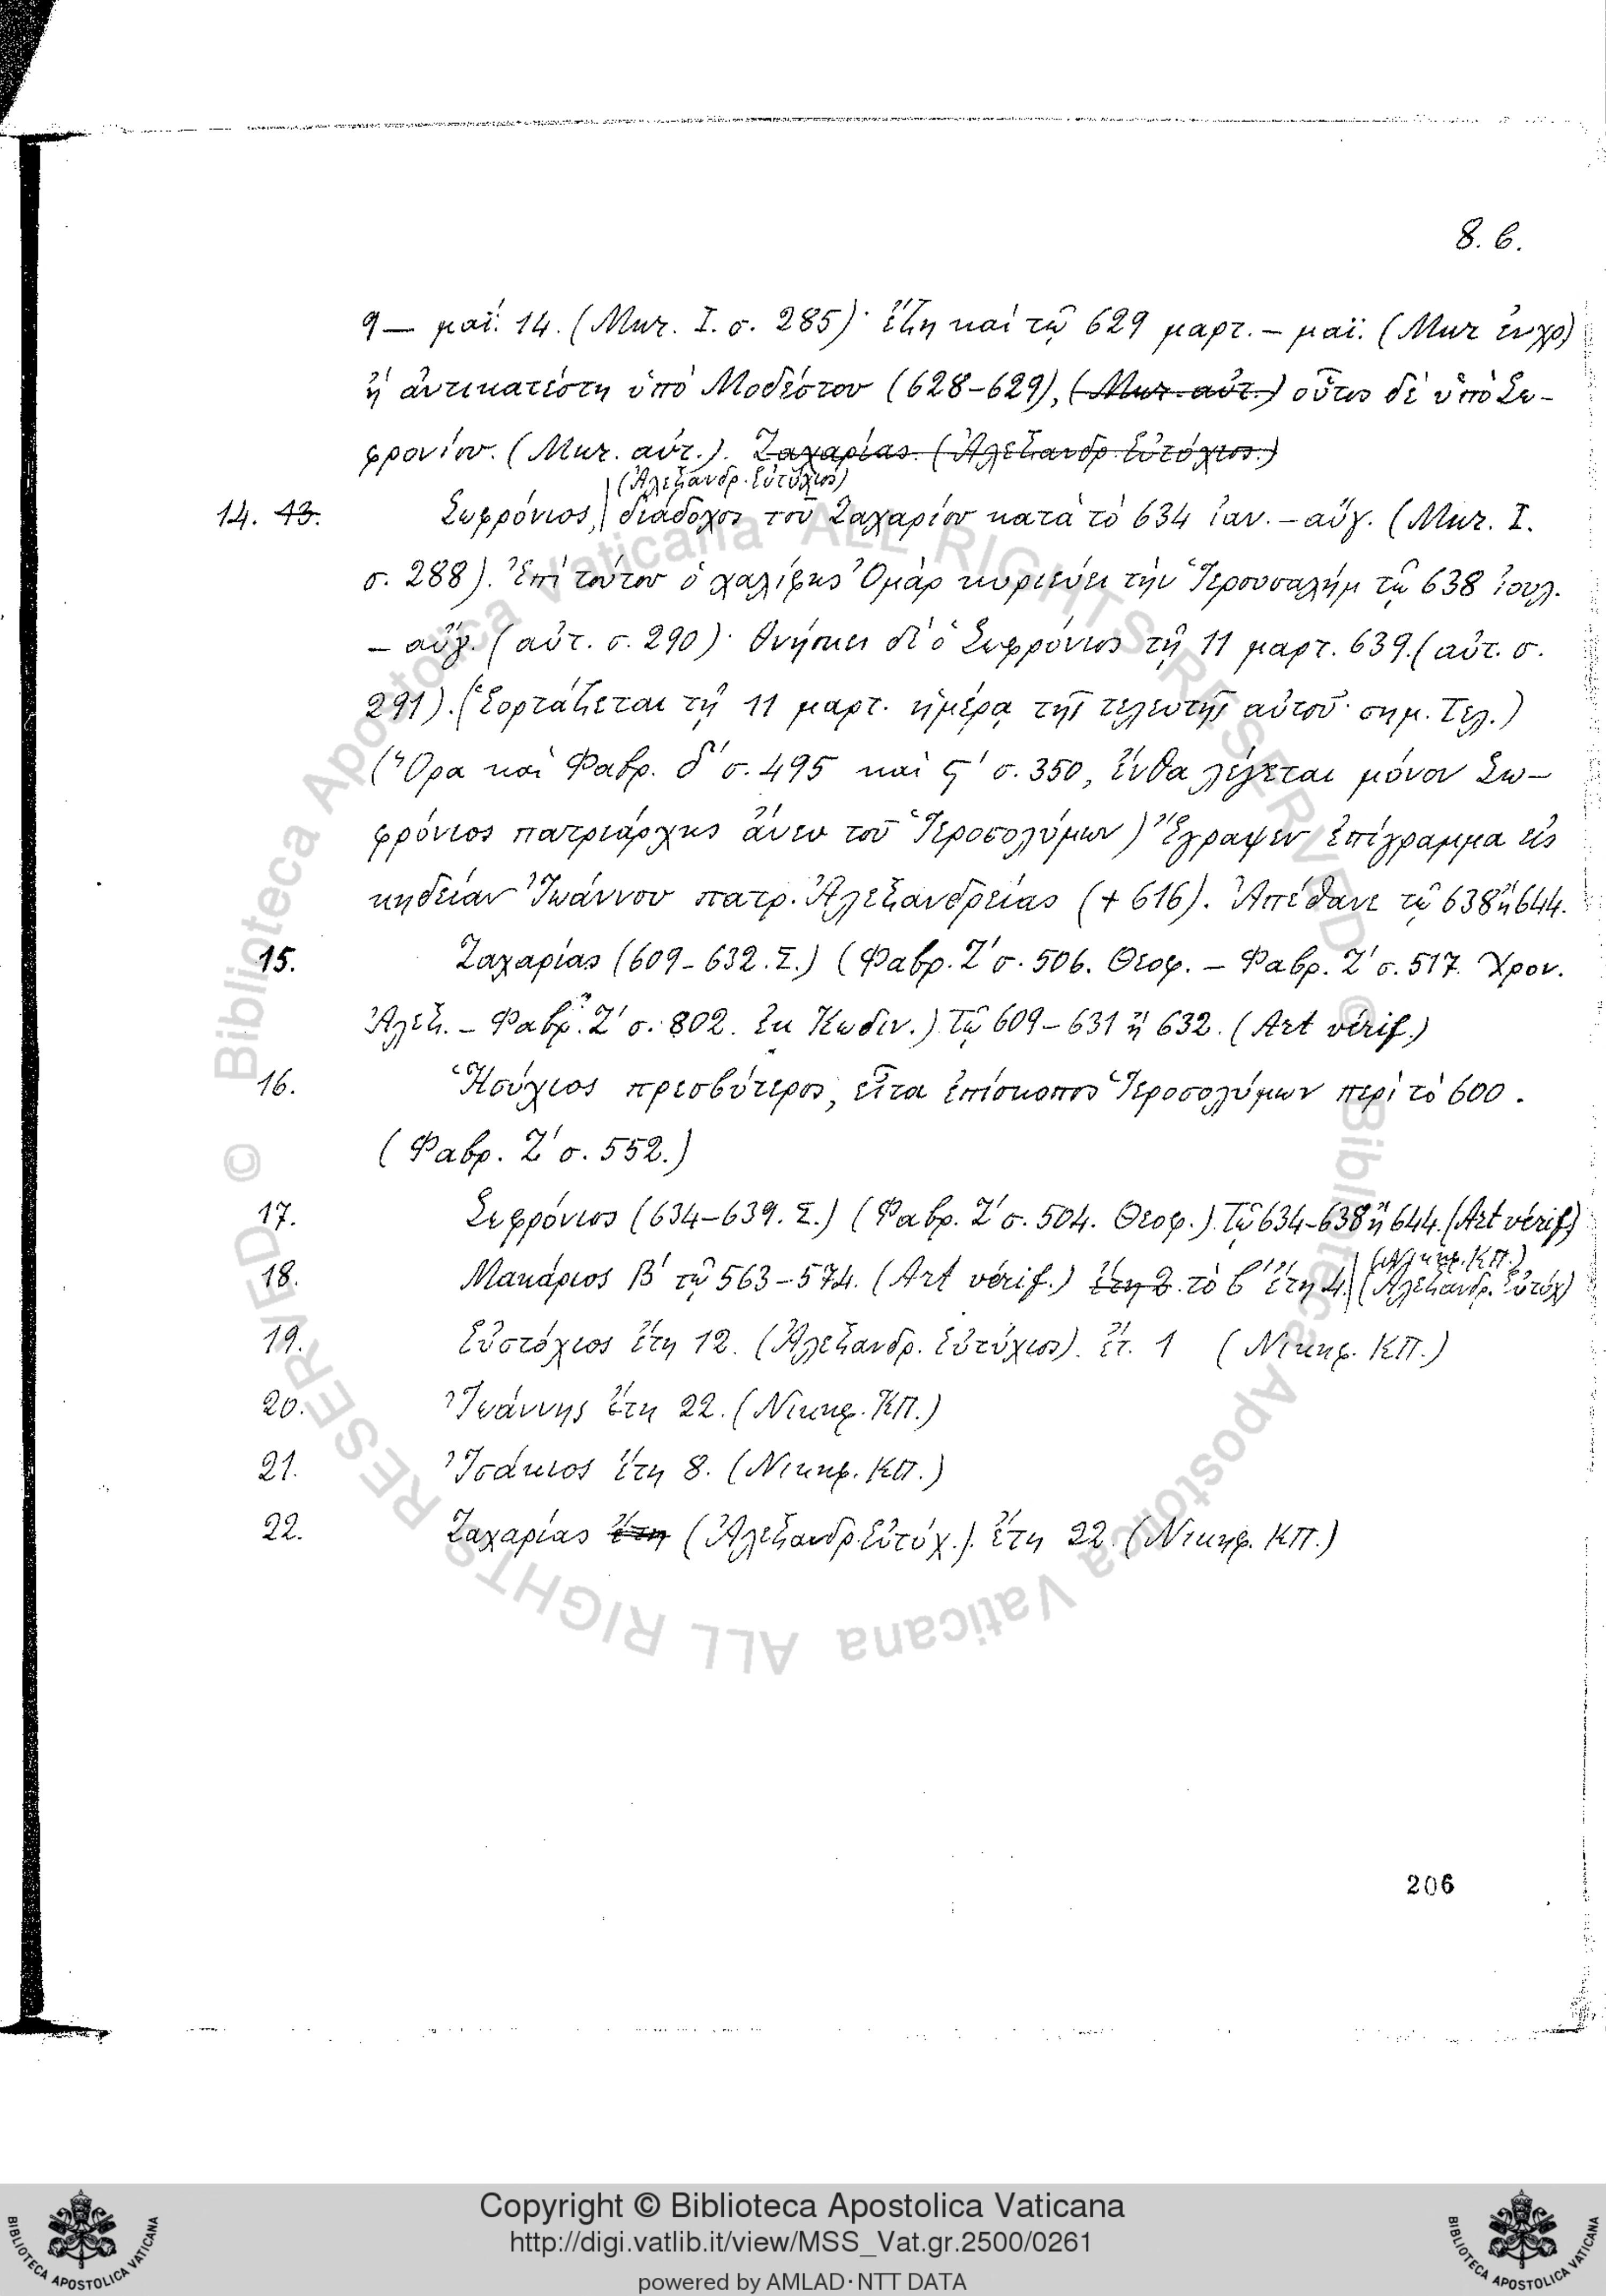 8. β.
9 — μαΐ. 14. (Μυρ. Ι. σ. 285)· ἔζη καὶ τῷ 629 μαρτ. – μαΐ. (Μυρ
ἢ ἀντικατέστη ὑπὸ Μοδέστου (628–629), (Μυρ. αὐτ.) οὗτος δὲ ὑπὸ Σω-
φρονίου. (Μυρ. αὐτ.). Ζαχαρίας. (Ἀλεξανδρ. Εὐτύχιος.)
(Ἀλεξανδρ. Εὐτύχιος)
14. 13. Σωφρόνιος, διάδοχος τοῦ Ζαχαρίου κατὰ τὸ 634 ἰαν. – αὔγ. (Μυρ. Ι.
σ. 288). Ἐπὶ τούτου ὁ χαλίφης Ὀμὰρ κυριεύει τὴν Ἱερουσαλὴμ τῷ 638 ἰουλ.
– αὔγ. (αὐτ. σ. 290)· θνήσκει δὲ ὁ Σωφρόνιος τῇ 11 μαρτ. 639. (αὐτ. σ.
291). (Ἑορτάζεται τῇ 11 μαρτ. ἡμέρᾳ τῆς τελευτῆς αὐτοῦ· σημ. Τελ.)
(Ὅρα καὶ Φαβρ. δʹ σ. 495 καὶ ϛʹ σ. 350, ἔνθα λέγεται μόνον Σω-
φρόνιος πατριάρχης ἄνευ τοῦ Ἱεροσολύμων) Ἔγραψεν ἐπίγραμμα εἰς
κηδείαν Ἰωάννου πατρ. Ἀλεξανδρείας (+ 616). Ἀπέθανε τῷ 638 ἢ 644.
15. Ζαχαρίας (609–632. Σ.) (Φαβρ. Ζʹ σ. 506. Θεοφ. – Φαβρ. Ζʹ σ. 517. Χρον.
Ἀλεξ. – Φαβρ. Ζʹ σ. 802. ἐκ Κωδιν.) Τῷ 609–631 ἢ 632. (Art vérif.)
16. Ἡσύχιος πρεσβύτερος, εἶτα ἐπίσκοπος Ἱεροσολύμων περὶ τὸ 600.
(Φαβρ. Ζʹ σ. 552.)
17. Σωφρόνιος (634–639. Σ.) (Φαβρ. Ζʹ σ. 504. Θεοφ.) Τῷ 634–638 ἢ 644. (Art vérif)
(Νικηφ. ΚΠ.)
18. Μακάριος Βʹ τῷ 563–574. (Art vérif.) ἔτη 2. τὸ βʹ ἔτη 4. (Ἀλεξανδρ. Εὐτύχ)
19. Εὐστόχιος ἔτη 12. (Ἀλεξανδρ. Εὐτύχιος). ἔτ. 1 (Νικηφ. ΚΠ.)
20. Ἰωάννης ἔτη 22. (Νικηφ. ΚΠ.)
21. Ἰσάκιος ἔτη 8. (Νικηφ. ΚΠ.)
22. Ζαχαρίας ἔτη (Ἀλεξανδρ. Εὐτύχ.). ἔτη 22. (Νικηφ. ΚΠ.)
206
© Biblioteca Apostolica Vaticana ALL RIGHTS RESERVED © Biblioteca Apostolica Vaticana ALL RIGHTS RESERVED
Copyright © Biblioteca Apostolica Vaticana
http://digi.vatlib.it/view/MSS_Vat.gr.2500/0261
powered by AMLAD·NTT DATA
BIBLIOTECA APOSTOLICA VATICANA
BIBLIOTECA APOSTOLICA VATICANA